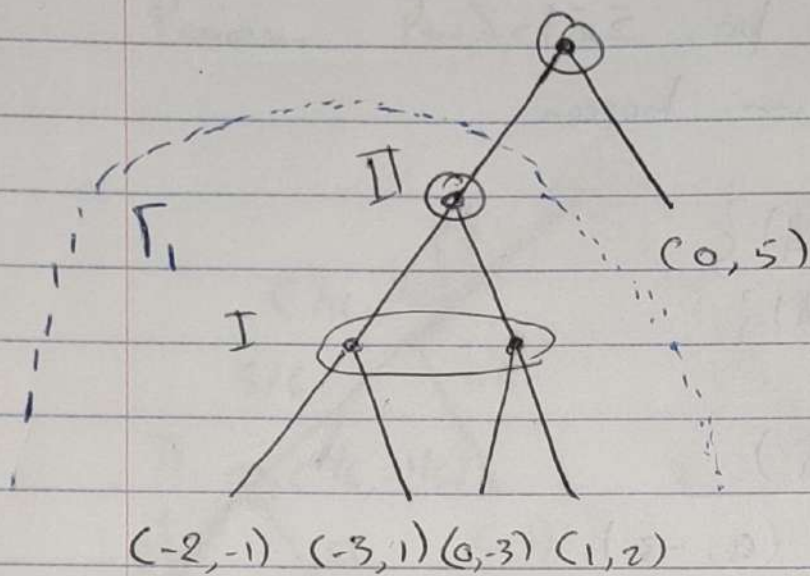 II
Γ₁
(0,5)
I
(-2,-1) (-3,1) (0,-3) (1,2)